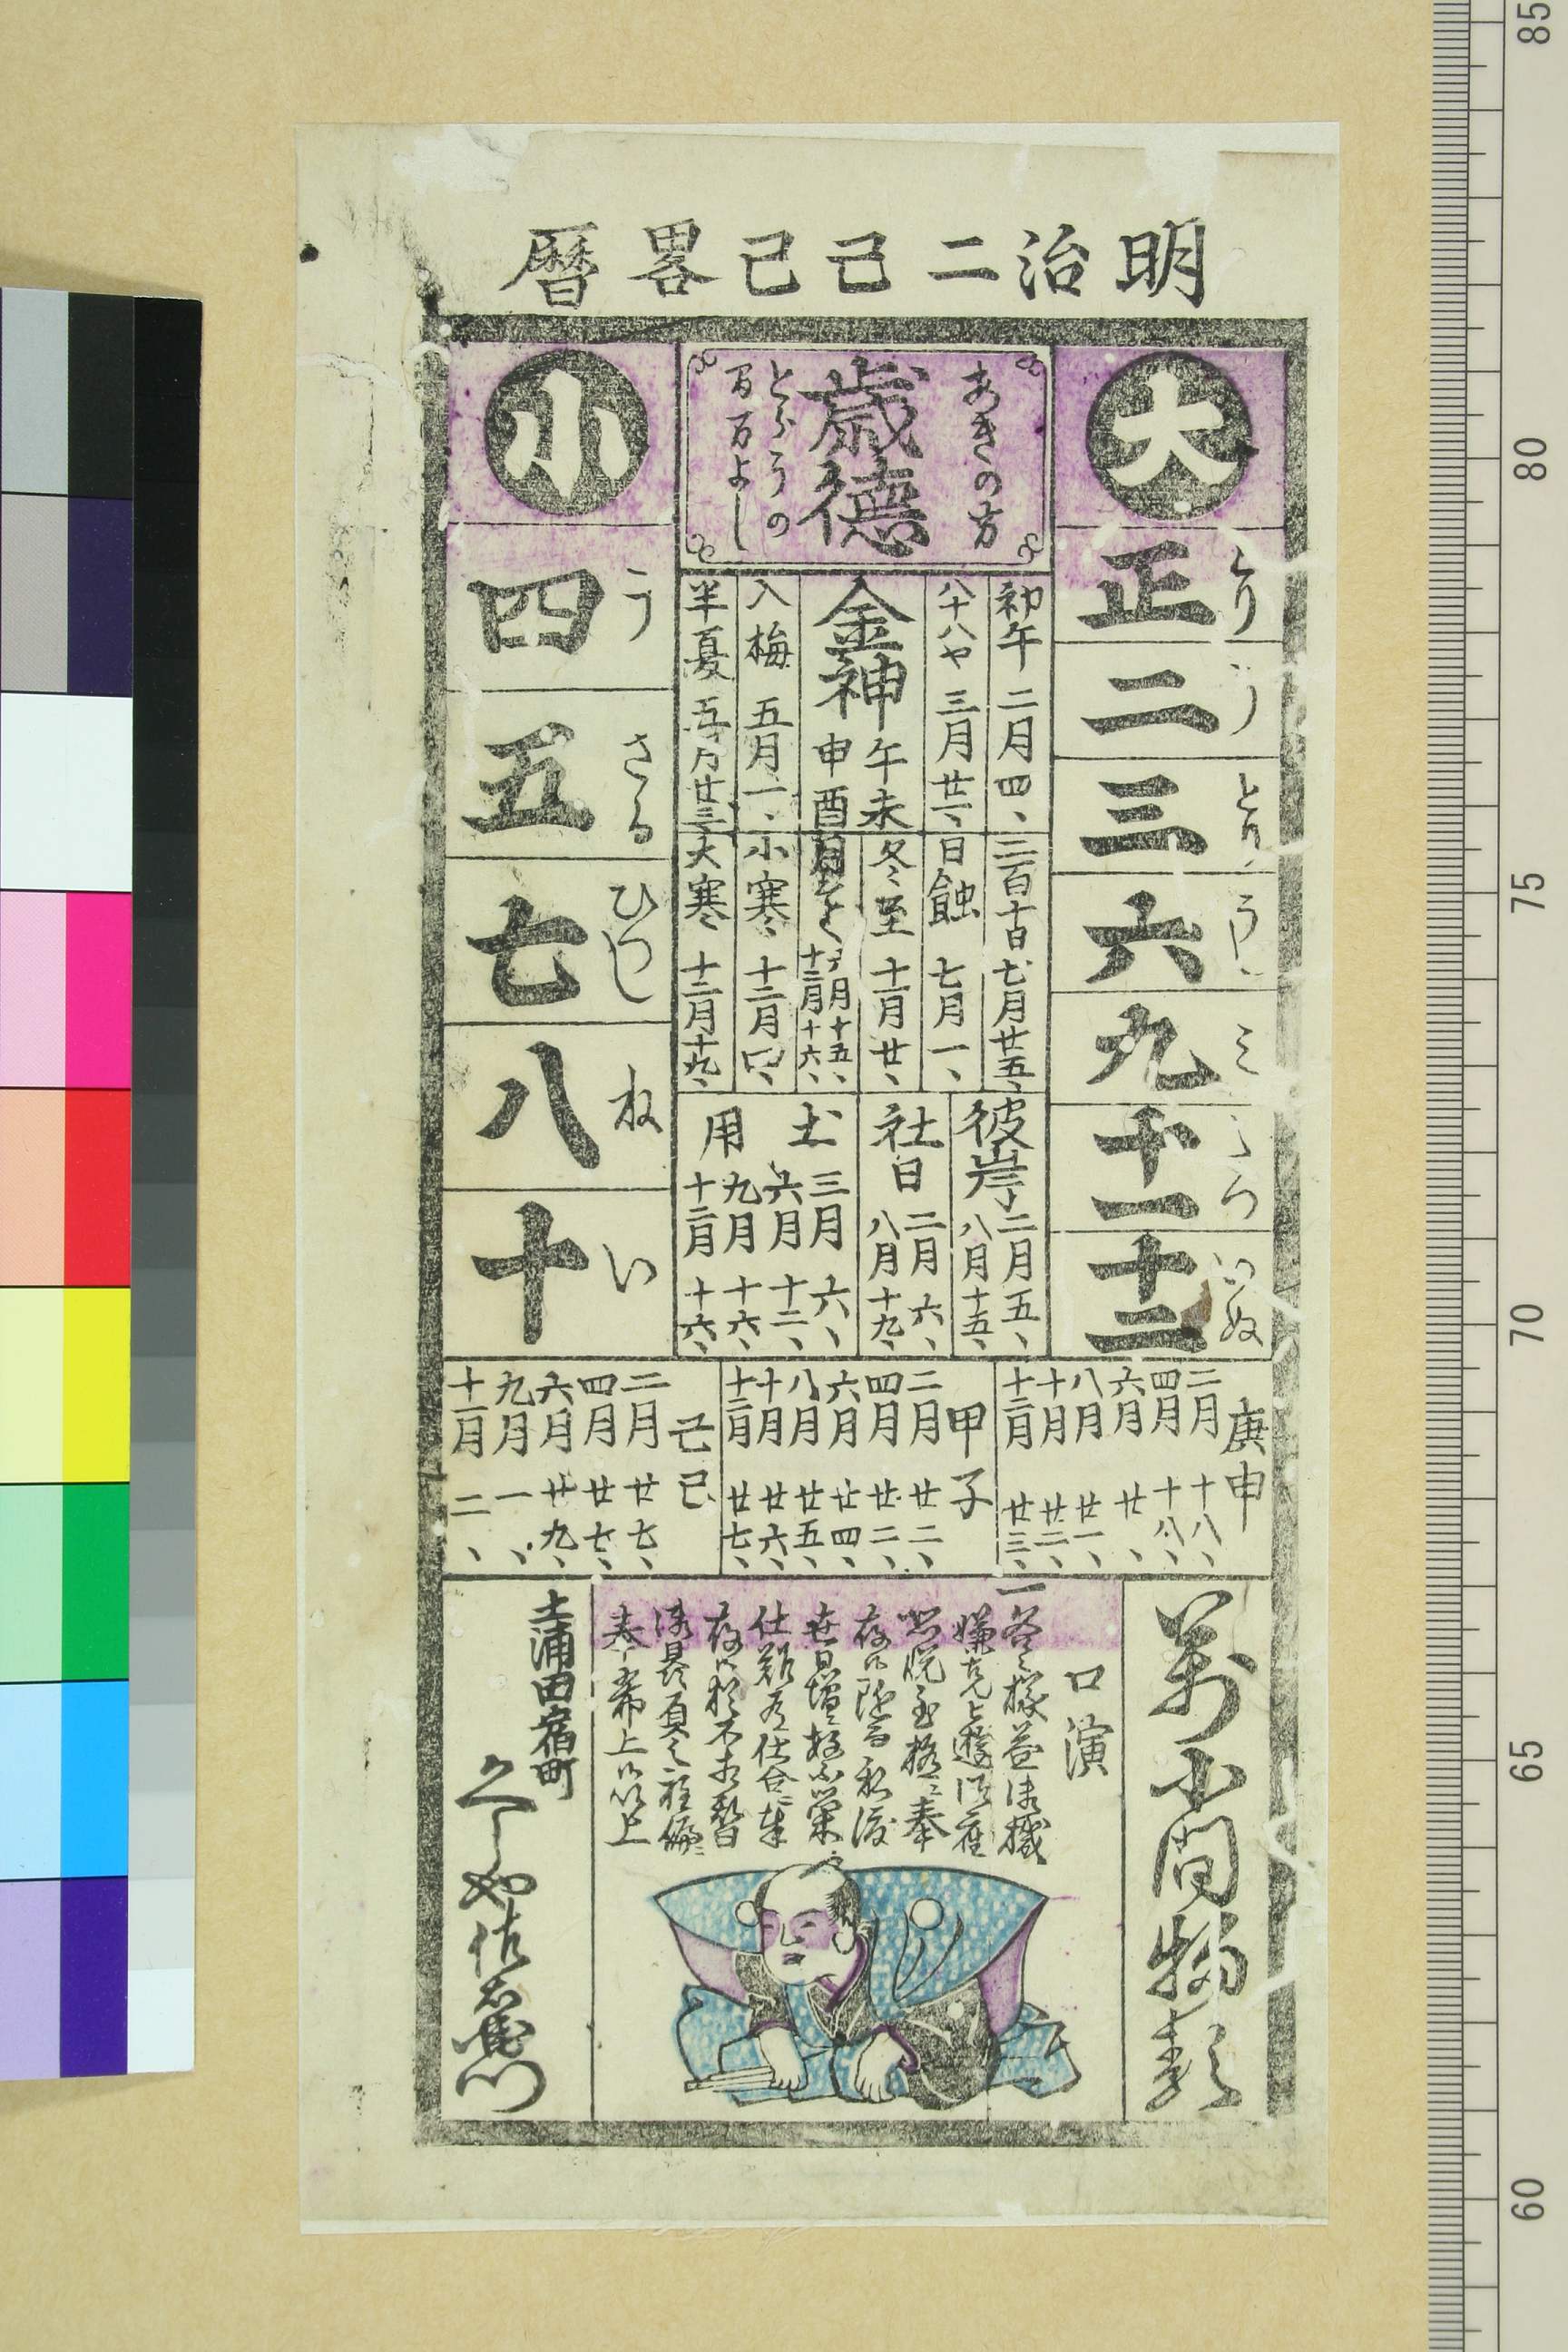 明治二己巳畧暦
大
とり
正
う
二
とり
三
うし
六
み
九
十一
いぬ
十二
あきの方
歳德
とらうの
間万よし
小
う
四
さる
五
ひつし
七
ね
八
い
十
初午 二月四、
八十八や 三月廿一、
金神 午未申酉
入梅 五月一、
半夏 五月廿三、
二百十日 七月廿五、
日蝕 七月一、
冬至 十一月廿、
月そく
十五、
十二月十六、
小寒 十二月四、
大寒 十二月十九、
彼岸
二月五、
八月十五、
社日
二月六、
八月十九、
土用
三月六、
六月十二、
九月十六、
十二月十六、
庚申
二月十八、
四月十八、
六月廿、
八月廿一、
十月廿二、
十二月廿三、
甲子
二月廿二、
四月廿二、
六月廿四、
八月廿五、
十月廿六、
十二月廿七、
己巳
二月廿七、
四月廿七、
六月廿九、
九月一、
十一月二、
萬小間物類
口演
一各々様益御機
嫌克被遊御座
恐悦至極ニ奉
存候随而私渡
世日増ニ繁栄
仕難有仕合ニ奉
存候猶不相替
御最負之程偏ニ
奉希上候以上
土浦田宿町